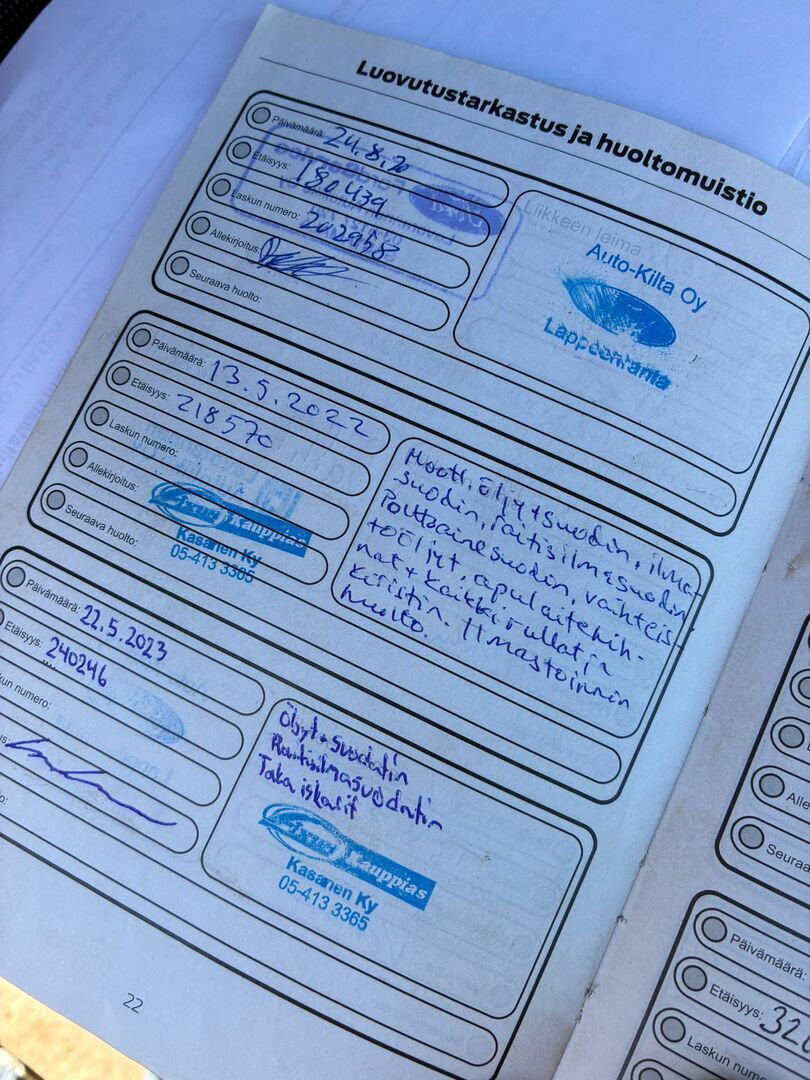 Luovutustarkastus ja huoltomuistio
Päivämäärä: 24.8.20
Etäisyys: 180439
Laskun numero: 202958
Allekirjoitus:
Seuraava huolto:
Liikkeen leima
Auto-Kilta Oy
Lappeenranta
Päivämäärä: 13.5.2022
Etäisyys: 218570
Laskun numero:
Allekirjoitus:
Seuraava huolto:
Fixus Kauppias
Kasanen Ky
05-413 3365
Moott. Öljy+suodin, ilma-
suodin, raitisilmasuodin,
Polttoainesuodin, vaihteis-
toöljyt, apulaitehih-
nat + kaikki rullat ja
kiristin. Ilmastoinnin
huolto.
Päivämäärä: 22.5.2023
Etäisyys: 240246
kun numero:
us:
o:
Öljyt+suodatin
Raitisilmasuodatin
Taka iskarit
Fixus Kauppias
Kasanen Ky
05-413 3365
22
Alle
Seuraa
Päivämäärä:
Etäisyys: 320
Laskun nume